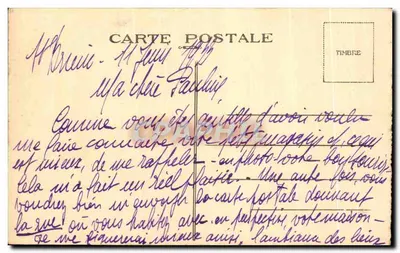 CARTE POSTALE
TIMBRE
St Brieuc - 11 Juin
Ma chère Pauline
Comme vous êtes gentille d'avoir voulu
me faire connaître votre petit magasin et ce qui
est mieux, de me rappeler - en photo - votre bon souvenir -
cela m'a fait un réel plaisir - Une autre fois, vous
voudrez bien m'envoyer la carte postale donnant
la rue où vous habitez avec - en perspective, votre maison -
Je me figurerai mieux ainsi, l'ambiance des lieux